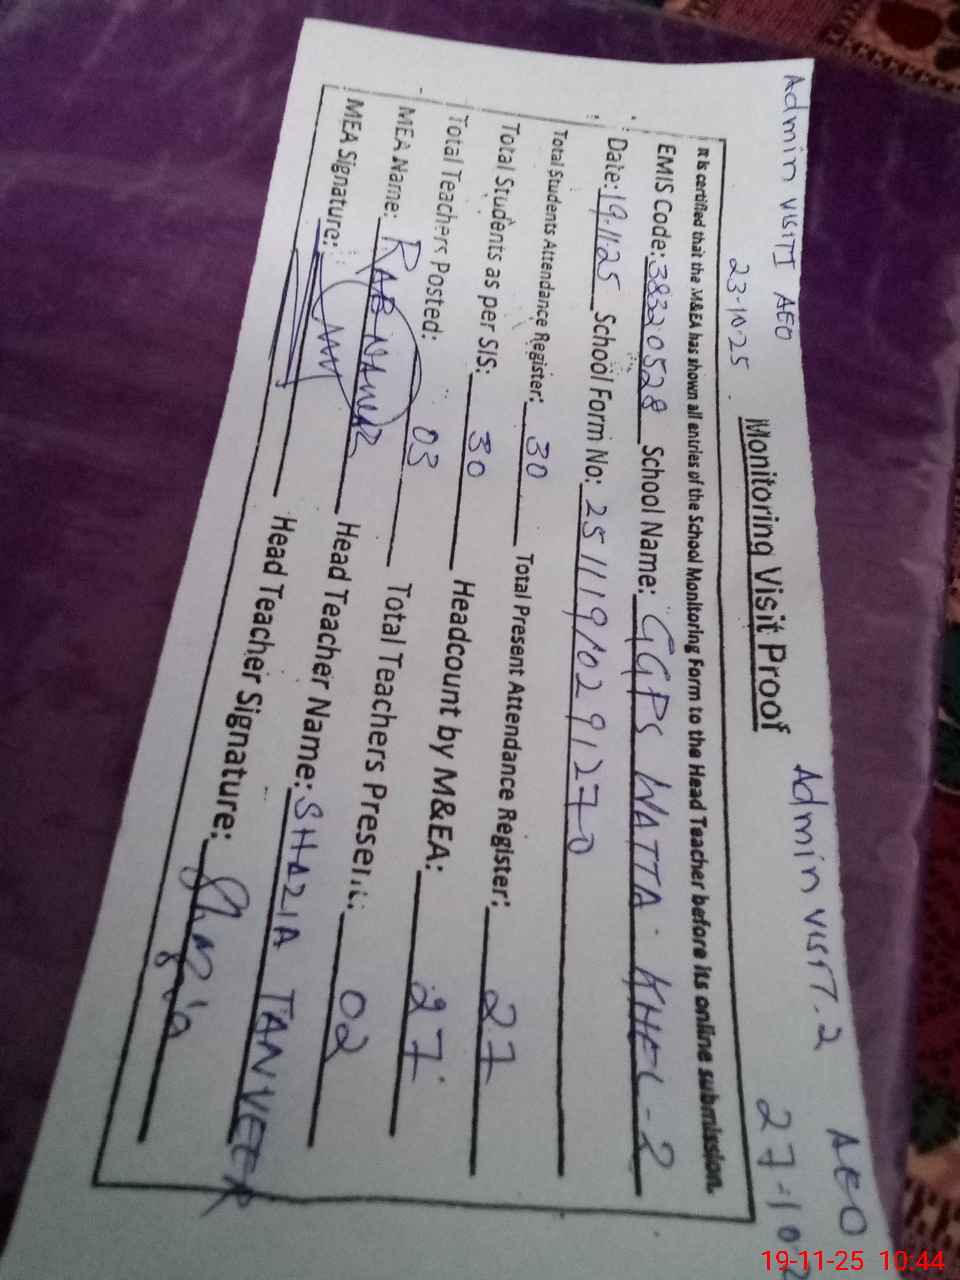 Admin VISIT I AEO
23-10-25
Admin VISIT. 2 AEO
27-10-2
Monitoring Visit Proof
It is certified that the M&EA has shown all entries of the School Monitoring Form to the Head Teacher before its online submission.
EMIS Code: 38320528 School Name: GGPS WATTA KHEL-2
Date: 19.11.25 School Form No: 25111910291270
Total Students Attendance Register: 30 Total Present Attendance Register: 27
Total Students as per SIS: 30 Headcount by M&EA: 27
Total Teachers Posted: 03 Total Teachers Present: 02
MEA Name: RAB NAWAZ Head Teacher Name: SHAZIA TANVEER
MEA Signature: Head Teacher Signature: Shazia
19-11-25 10:44